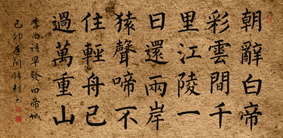 朝辭白帝
彩雲間千
里江陵一
日還兩岸
猿聲啼不
住輕舟已
過萬重山
李白詩早發白帝城
己卯